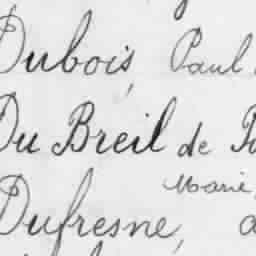 Dubois, Paul
Du Breil de
Marie,
Dufresne,